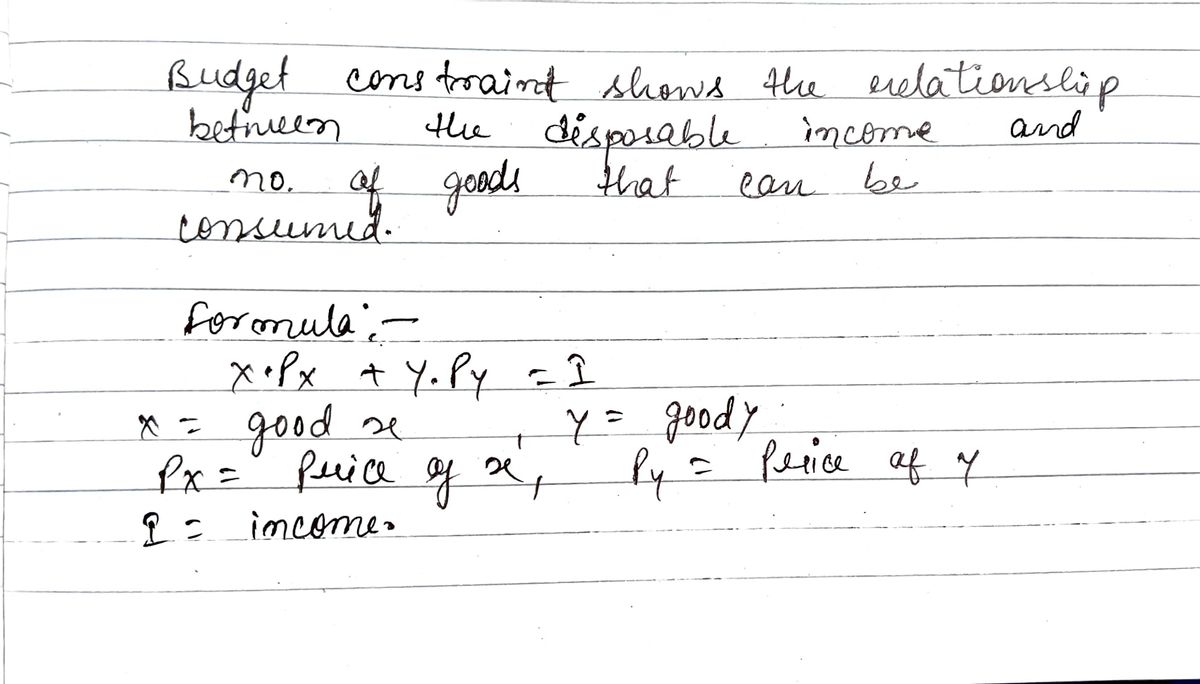 Budget constraint shows the relationship
between the disposable income and
no. of goods that can be
consumed.
formula:-
x.Px + Y.Py = I
x = good x, Y = good y
Px = Price of x, Py = Price of y
I = income.